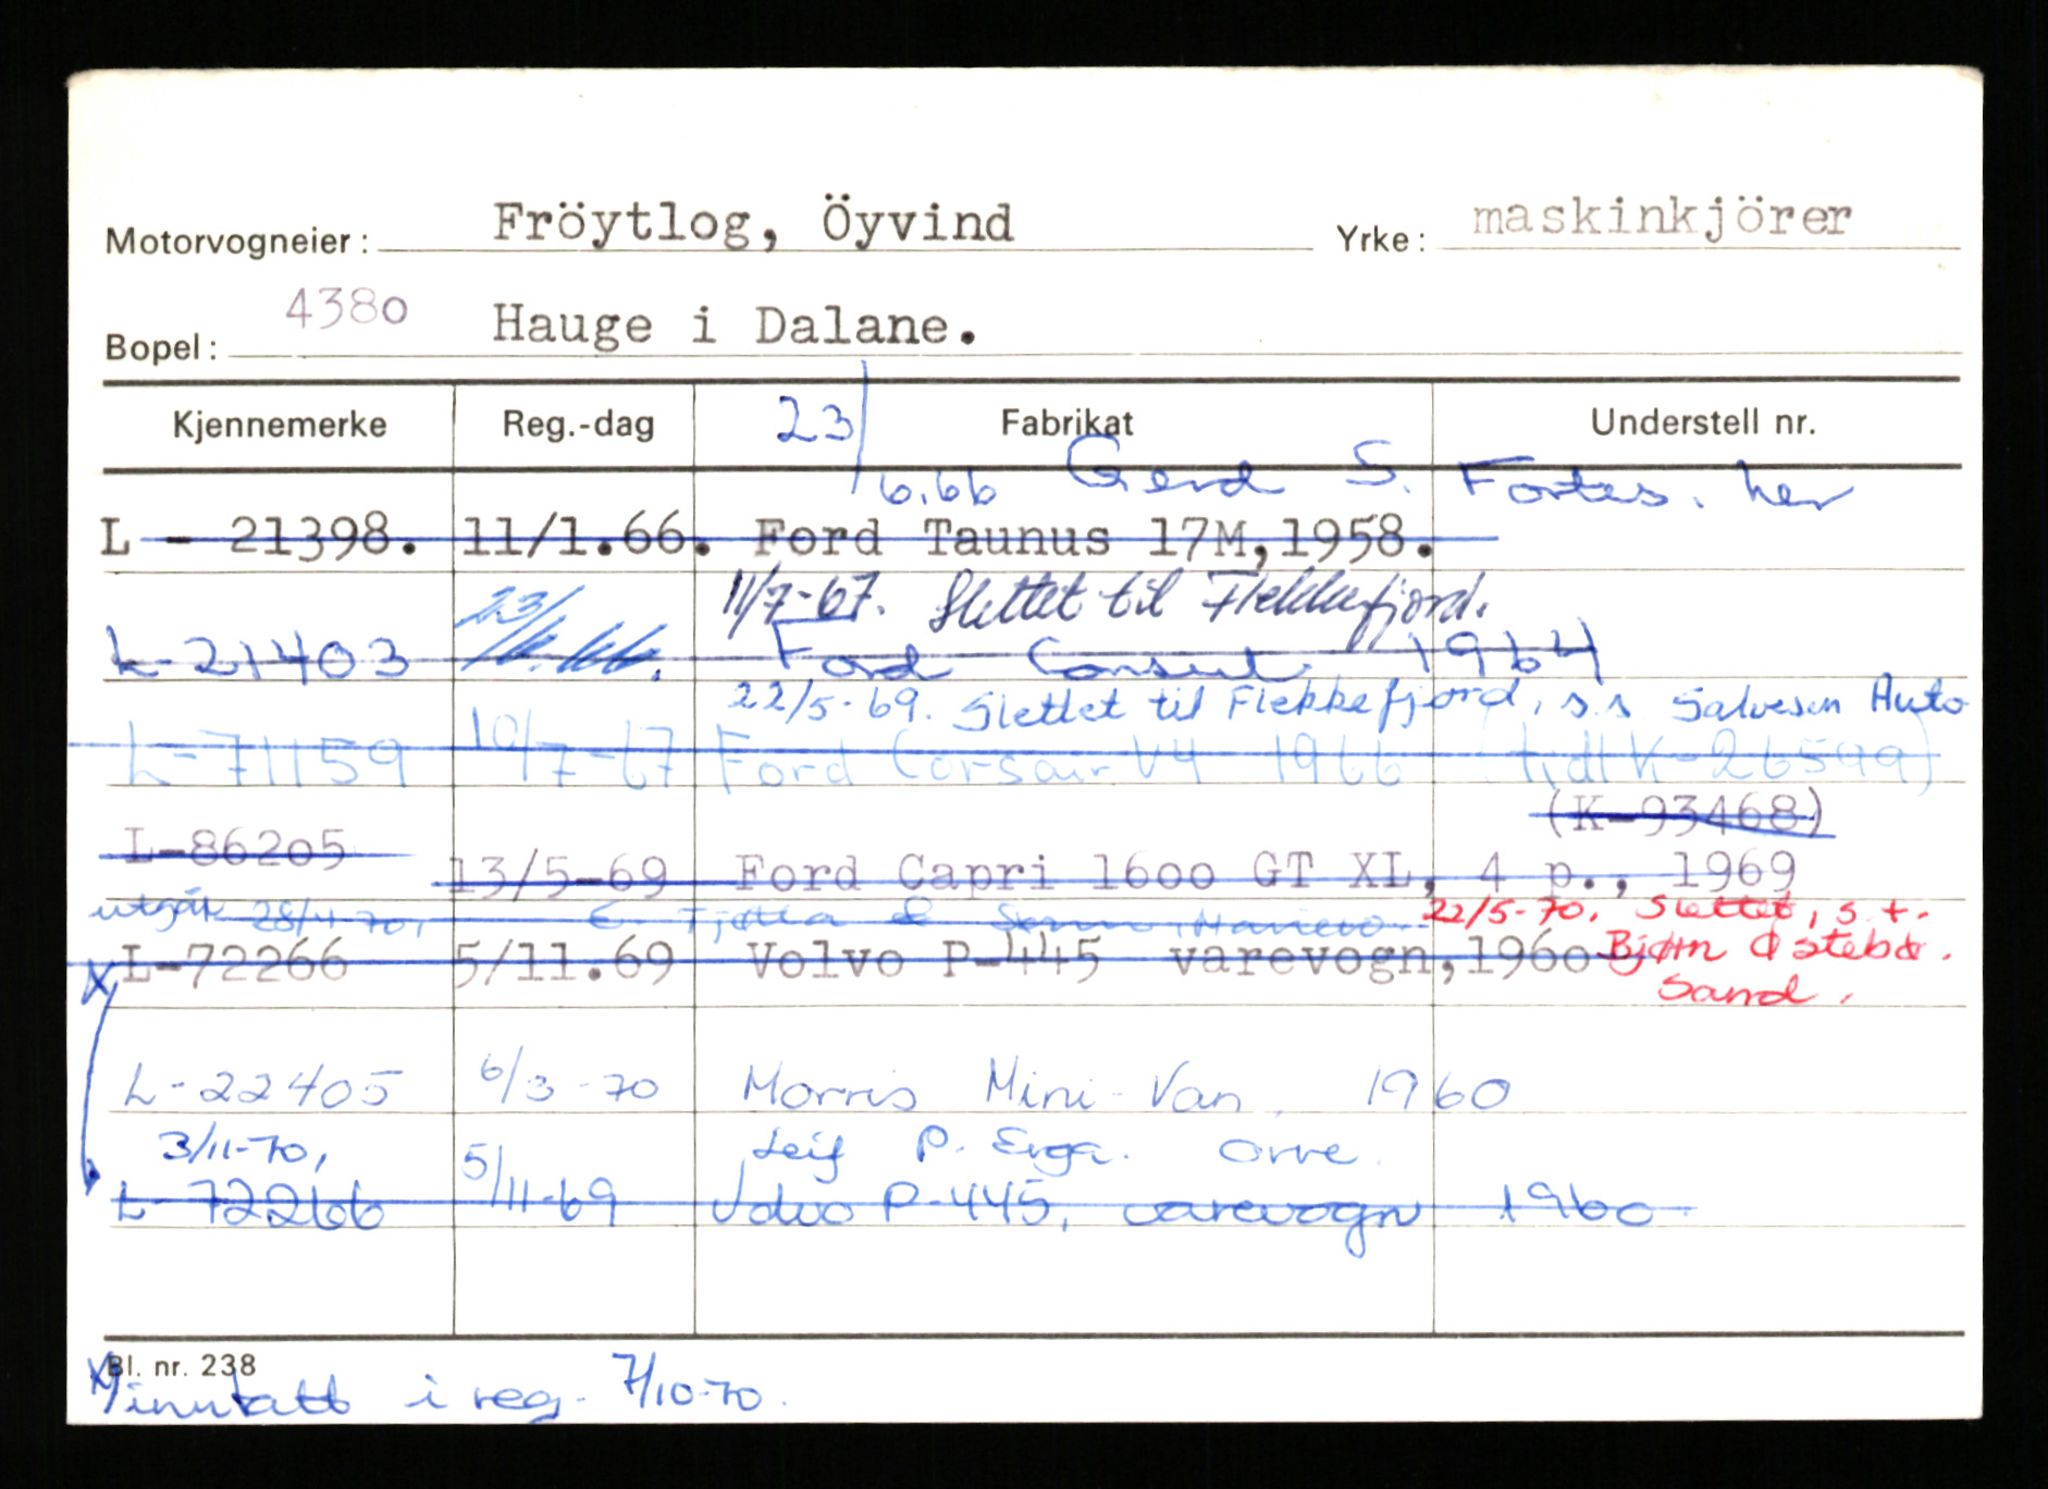 Motorvogneier: Fröytlog, Öyvind Yrke: maskinkjörer
Bopel: 4380 Hauge i Dalane.
Kjennemerke Reg.-dag Fabrikat Understell nr.
23/6.66 Gerd S. Fortes. her
L - 21398. 11/1.66. Ford Taunus 17M,1958.
11/7-67. Slettet til Flekkefjord.
L-21403 23/6.66. Ford Consul 1964
22/5-69. Slettet til Flekkefjord, s.s Salvesen Auto
L-71159 10/7-67 Ford Corsair V4 1966 (tidl K-26599)
(K-93468)
L-86205 13/5-69 Ford Capri 1600 GT XL, 4 p., 1969
utgår 28/4-70, E. Tjetla & Sønn, 22/5-70. Slettet, s.t.
L-72266 5/11.69 Volvo P-445 varevogn,1960 Bjørn Østebø.
Sand.
L-22405 6/3-70 Morris Mini-Van. 1960
3/11-70, Leif P. Erga. Orre.
L-72266 5/11-69 Volvo P-445, varevogn 1960
Bl. nr. 238
x) inntatt i reg. 7/10-70.